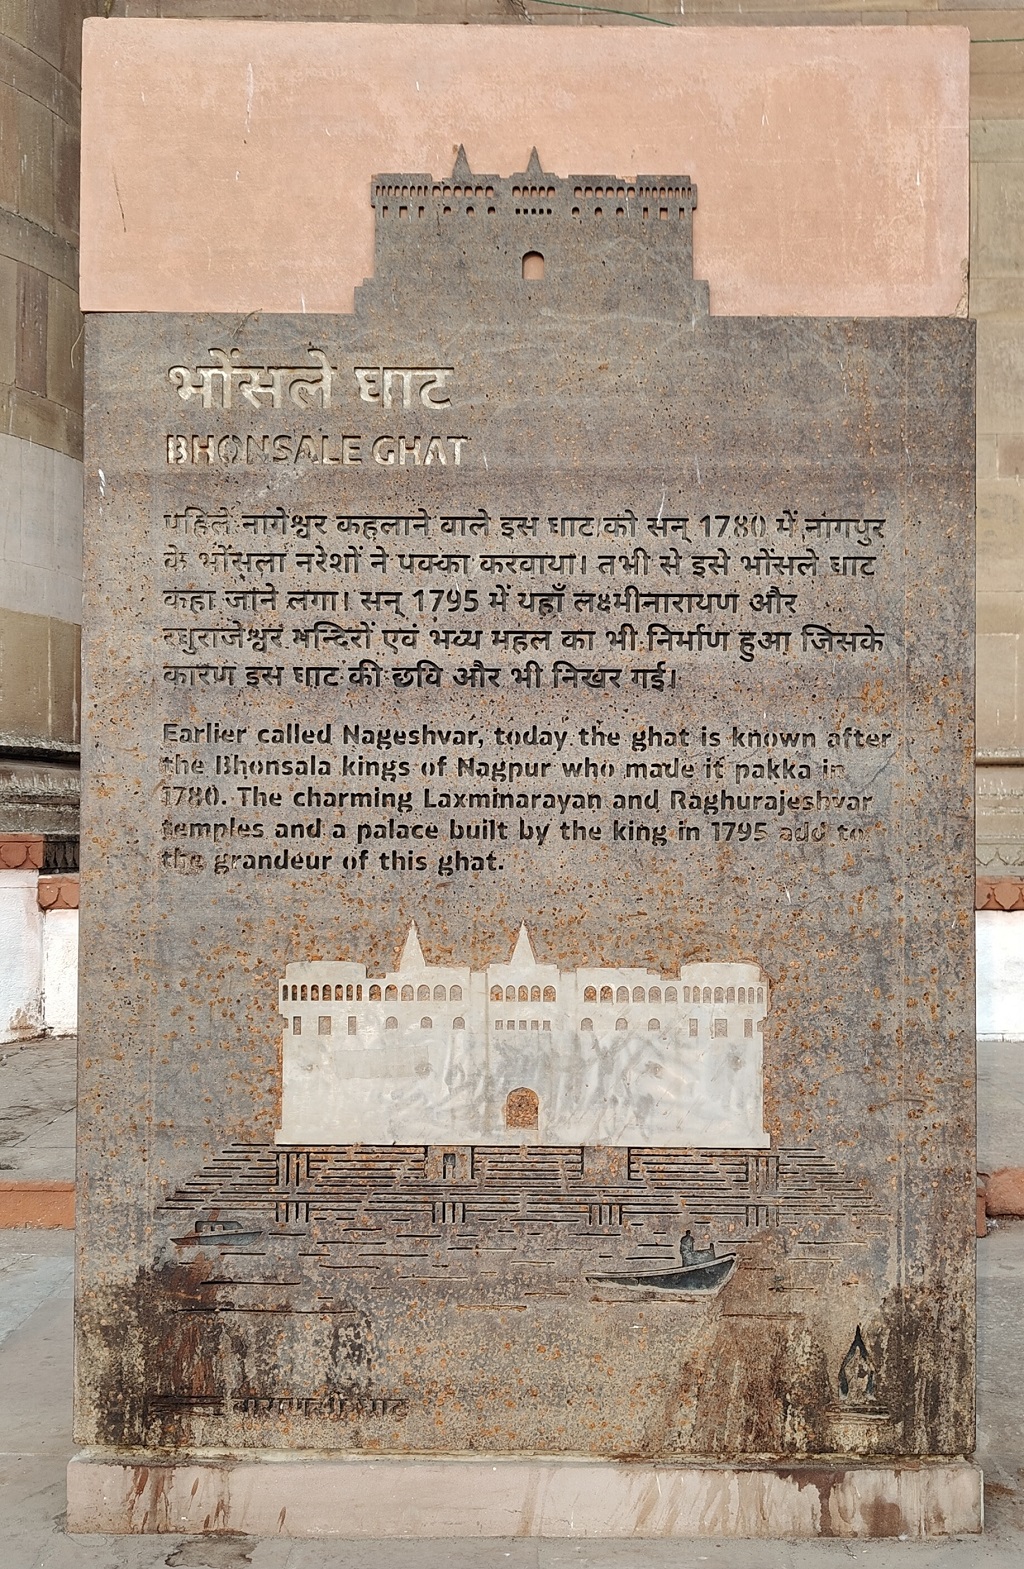 भोंसले घाट
BHONSALE GHAT
पहिले नागेश्वर कहलाने वाले इस घाट को सन् 1780 में नागपुर
के भोंसला नरेशों ने पक्का करवाया। तभी से इसे भोंसले घाट
कहा जाने लगा। सन् 1795 में यहाँ लक्ष्मीनारायण और
रघुराजेश्वर मन्दिरों एवं भव्य महल का भी निर्माण हुआ जिसके
कारण इस घाट की छवि और भी निखर गई।
Earlier called Nageshvar, today the ghat is known after
the Bhonsala kings of Nagpur who made it pakka in
1780. The charming Laxminarayan and Raghurajeshvar
temples and a palace built by the king in 1795 add to
the grandeur of this ghat.
घाट